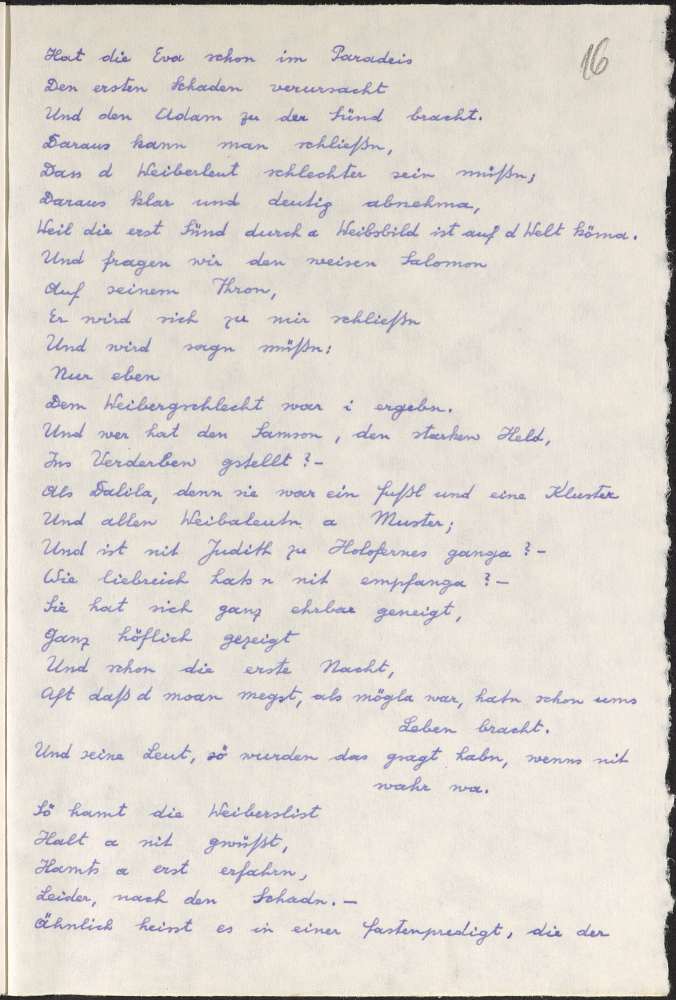 16
Hat die Eva schon im Paradeis
Den ersten Schaden verursacht
Und den Adam zu der Sünd bracht.
Daraus kann man schließn,
Dass d Weiberleut schlechter sein müßn;
Daraus klar und deutig abnehma,
Weil die erst Sünd durch a Weibsbild ist auf d Welt köma.
Und fragen wir den weisen Salomon
Auf seinem Thron,
Er wird sich zu mir schließn
Und wird sagn müßn:
Nur eben
Dem Weibergschlecht war i ergebn.
Und wer hat den Samson, den starken Held,
Ins Verderben gstellt? -
Als Dalila, denn sie war ein und eine Kluster
Und allen Weibaleutn a Muster;
Und ist nit Judith zu Holofernes ganga? -
Wie liebreich hats n nit empfanga? -
Sie hat sich ganz ehrbar geneigt,
Ganz höflich gezeigt
Und schon die erste Nacht,
Aft daß d moan megst, als mögla war, hatn schon ums
Leben bracht.
Und seine Leut, sö wurden das gsagt habn, wenns nit
wahr wa.
Sö hamt die Weiberslist
Halt a nit gwüßt,
Hamts a erst erfahrn,
Leider, nach den Schadn. -
Ähnlich heisst es in einer Fastenpredigt, die der